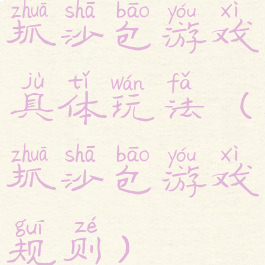 zhuā shā bāo yóu xì
抓沙包游戏
jù tǐ wán fǎ
具体玩法（
zhuā shā bāo yóu xì
抓沙包游戏
guī zé
规则）